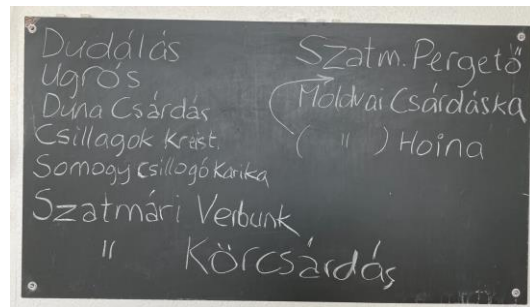 Dudálás
Ugrós
Duna Csárdás
Csillagok
Somogy csillogó karika
Szatmári Verbunk
" Körcsárdás
Szatm. Pergető
Moldvai Csárdáska
( " ) Hoina